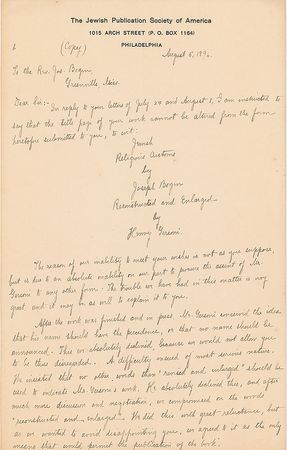 The Jewish Publication Society of America
1015 ARCH STREET (P. O. BOX 1164)
PHILADELPHIA
(Copy)
August 5, 189
To the Rev. Jos. Bogen
Greenville, Miss.
Dear Sir:- In reply to your letters of July 30 and August 1, I am instructed to
say that the title page of your work cannot be altered from the form
heretofore submitted to you, to wit:
Jewish
Religious Customs
by
Joseph Bogen
Reconstructed and Enlarged
by
Henry Gersoni.
The reason of our inability to meet your wishes is not as you suppose,
but is due to an absolute inability on our part to procure the assent of Mr.
Gersoni to any other form. The trouble we have had in this matter is very
great, and it may be as well to explain it to you.
After the work was finished and in press, Mr. Gersoni conceived the idea
that his name should have the precedence, or that no name should be
announced. This we absolutely declined, because we would not allow you
to be thus disregarded. A difficulty ensued of most serious nature.
We insisted that no other words than "revised and enlarged" should be
used to indicate Mr. Gersoni's work. He absolutely declined this, and after
much more discussion and negotiation, we compromised on the words
"reconstructed and enlarged". He did this with great reluctance, but
as we wanted to avoid disappointing you, we agreed to it as the only
means that would permit the publication of the book.